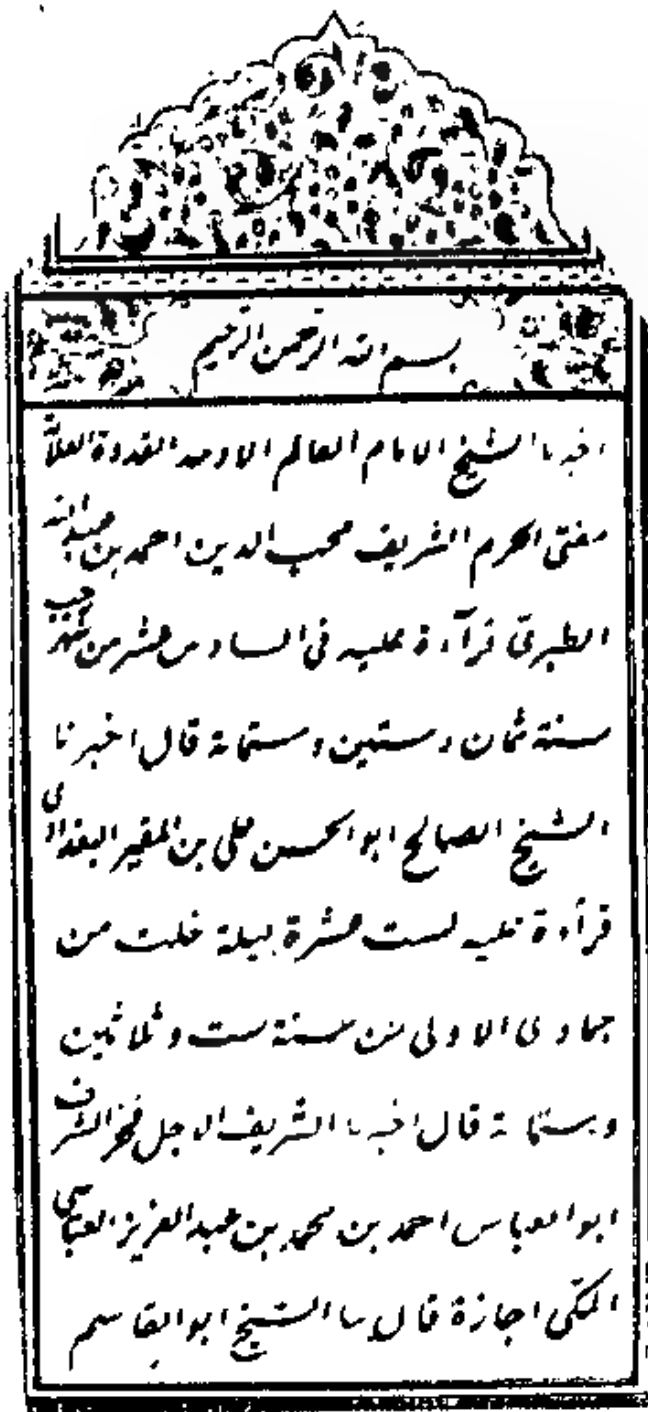 بسم الله الرحمن الرحيم
اخبرنا الشيخ الامام العالم الاوحد القدوة العلا
مفتى الحرم الشريف محب الدين احمد بن عبدالله
الطبرىّ قرآءة عليه فى السادس عشر من شهر رجب
سنة ثمان وستين وستماتة قال اخبرنا
الشيخ الصالح ابوالحسن على بن المقير البغدادى
قرآءة عليه لست عشرة ليلة خلت من
جمادى الاولى من سنة ست وثلاثين
وستماتة قال اخبرنا الشريف الاجل فخر الشرف
ابوالعباس احمد بن محمد بن عبدالعزيز العباسى
المكّى اجازة قال انا الشيخ ابوالقاسم